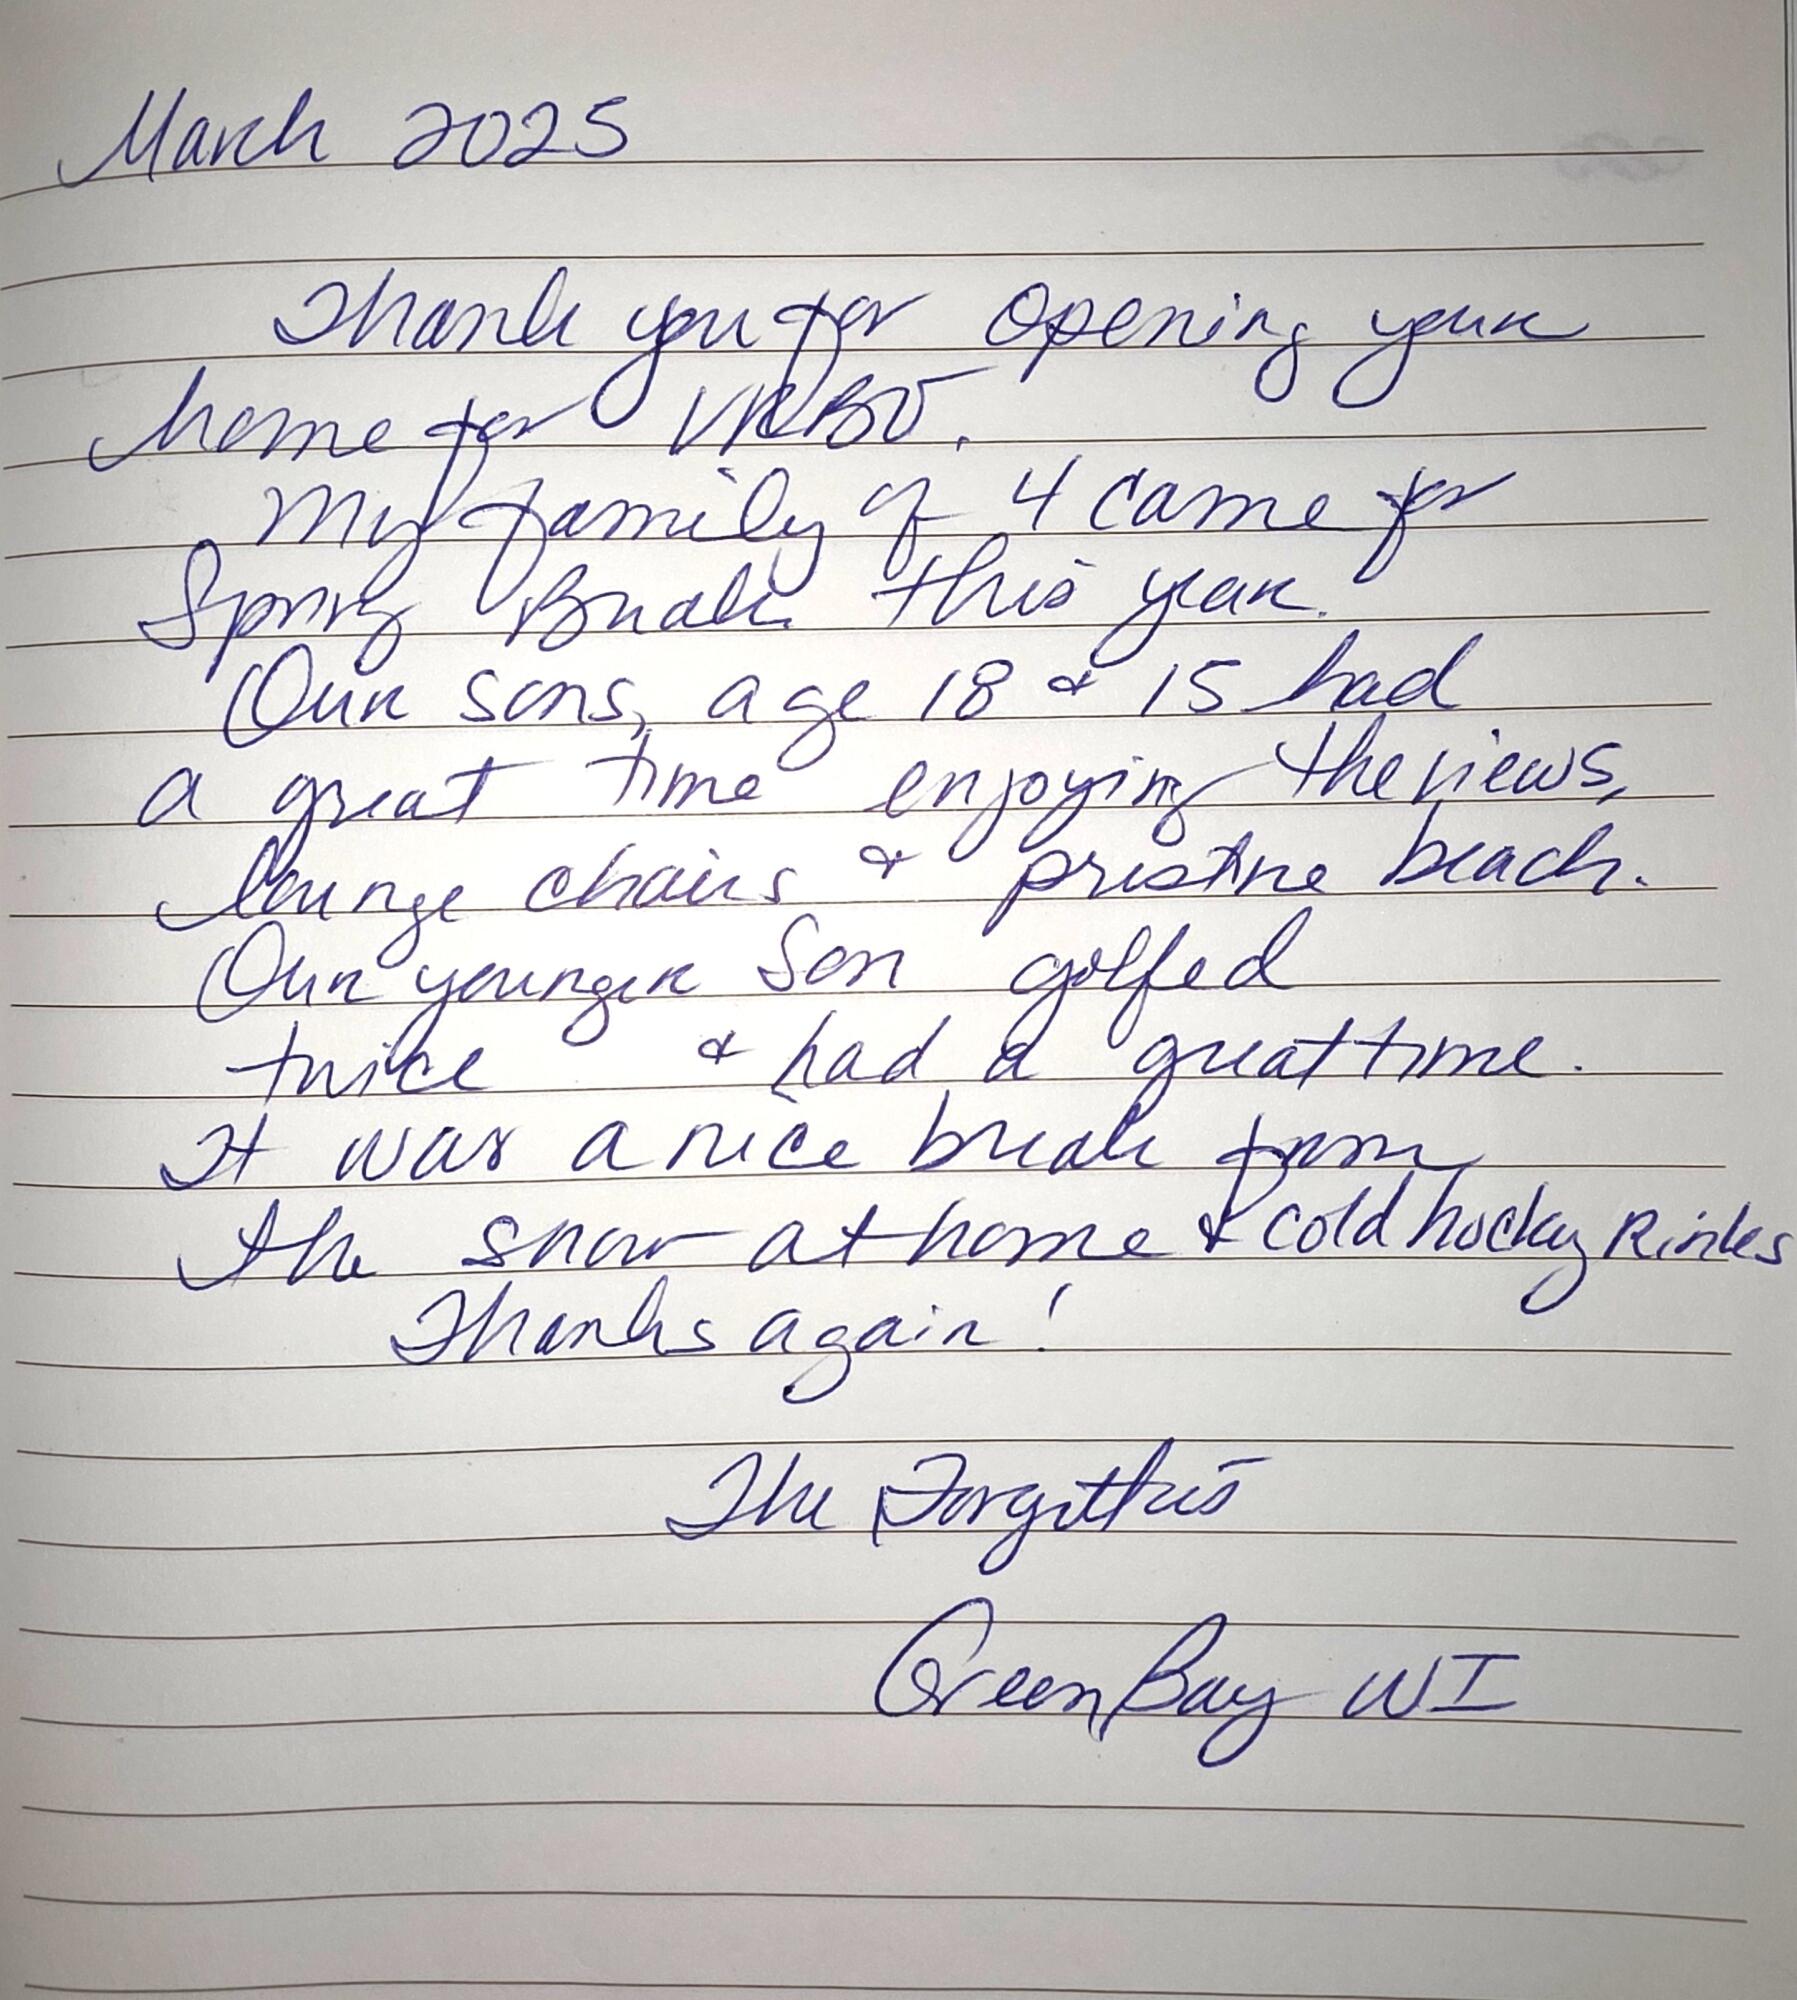 March 2025
Thank you for opening your
home for VRBO.
My family of 4 came for
Spring Break this year.
Our sons, age 18 & 15 had
a great time enjoying the views,
lounge chairs & pristine beach.
Our younger son golfed
twice & had a great time.
It was a nice break from
the snow at home & cold hockey Rinks
Thanks again!
The
Green Bay WI